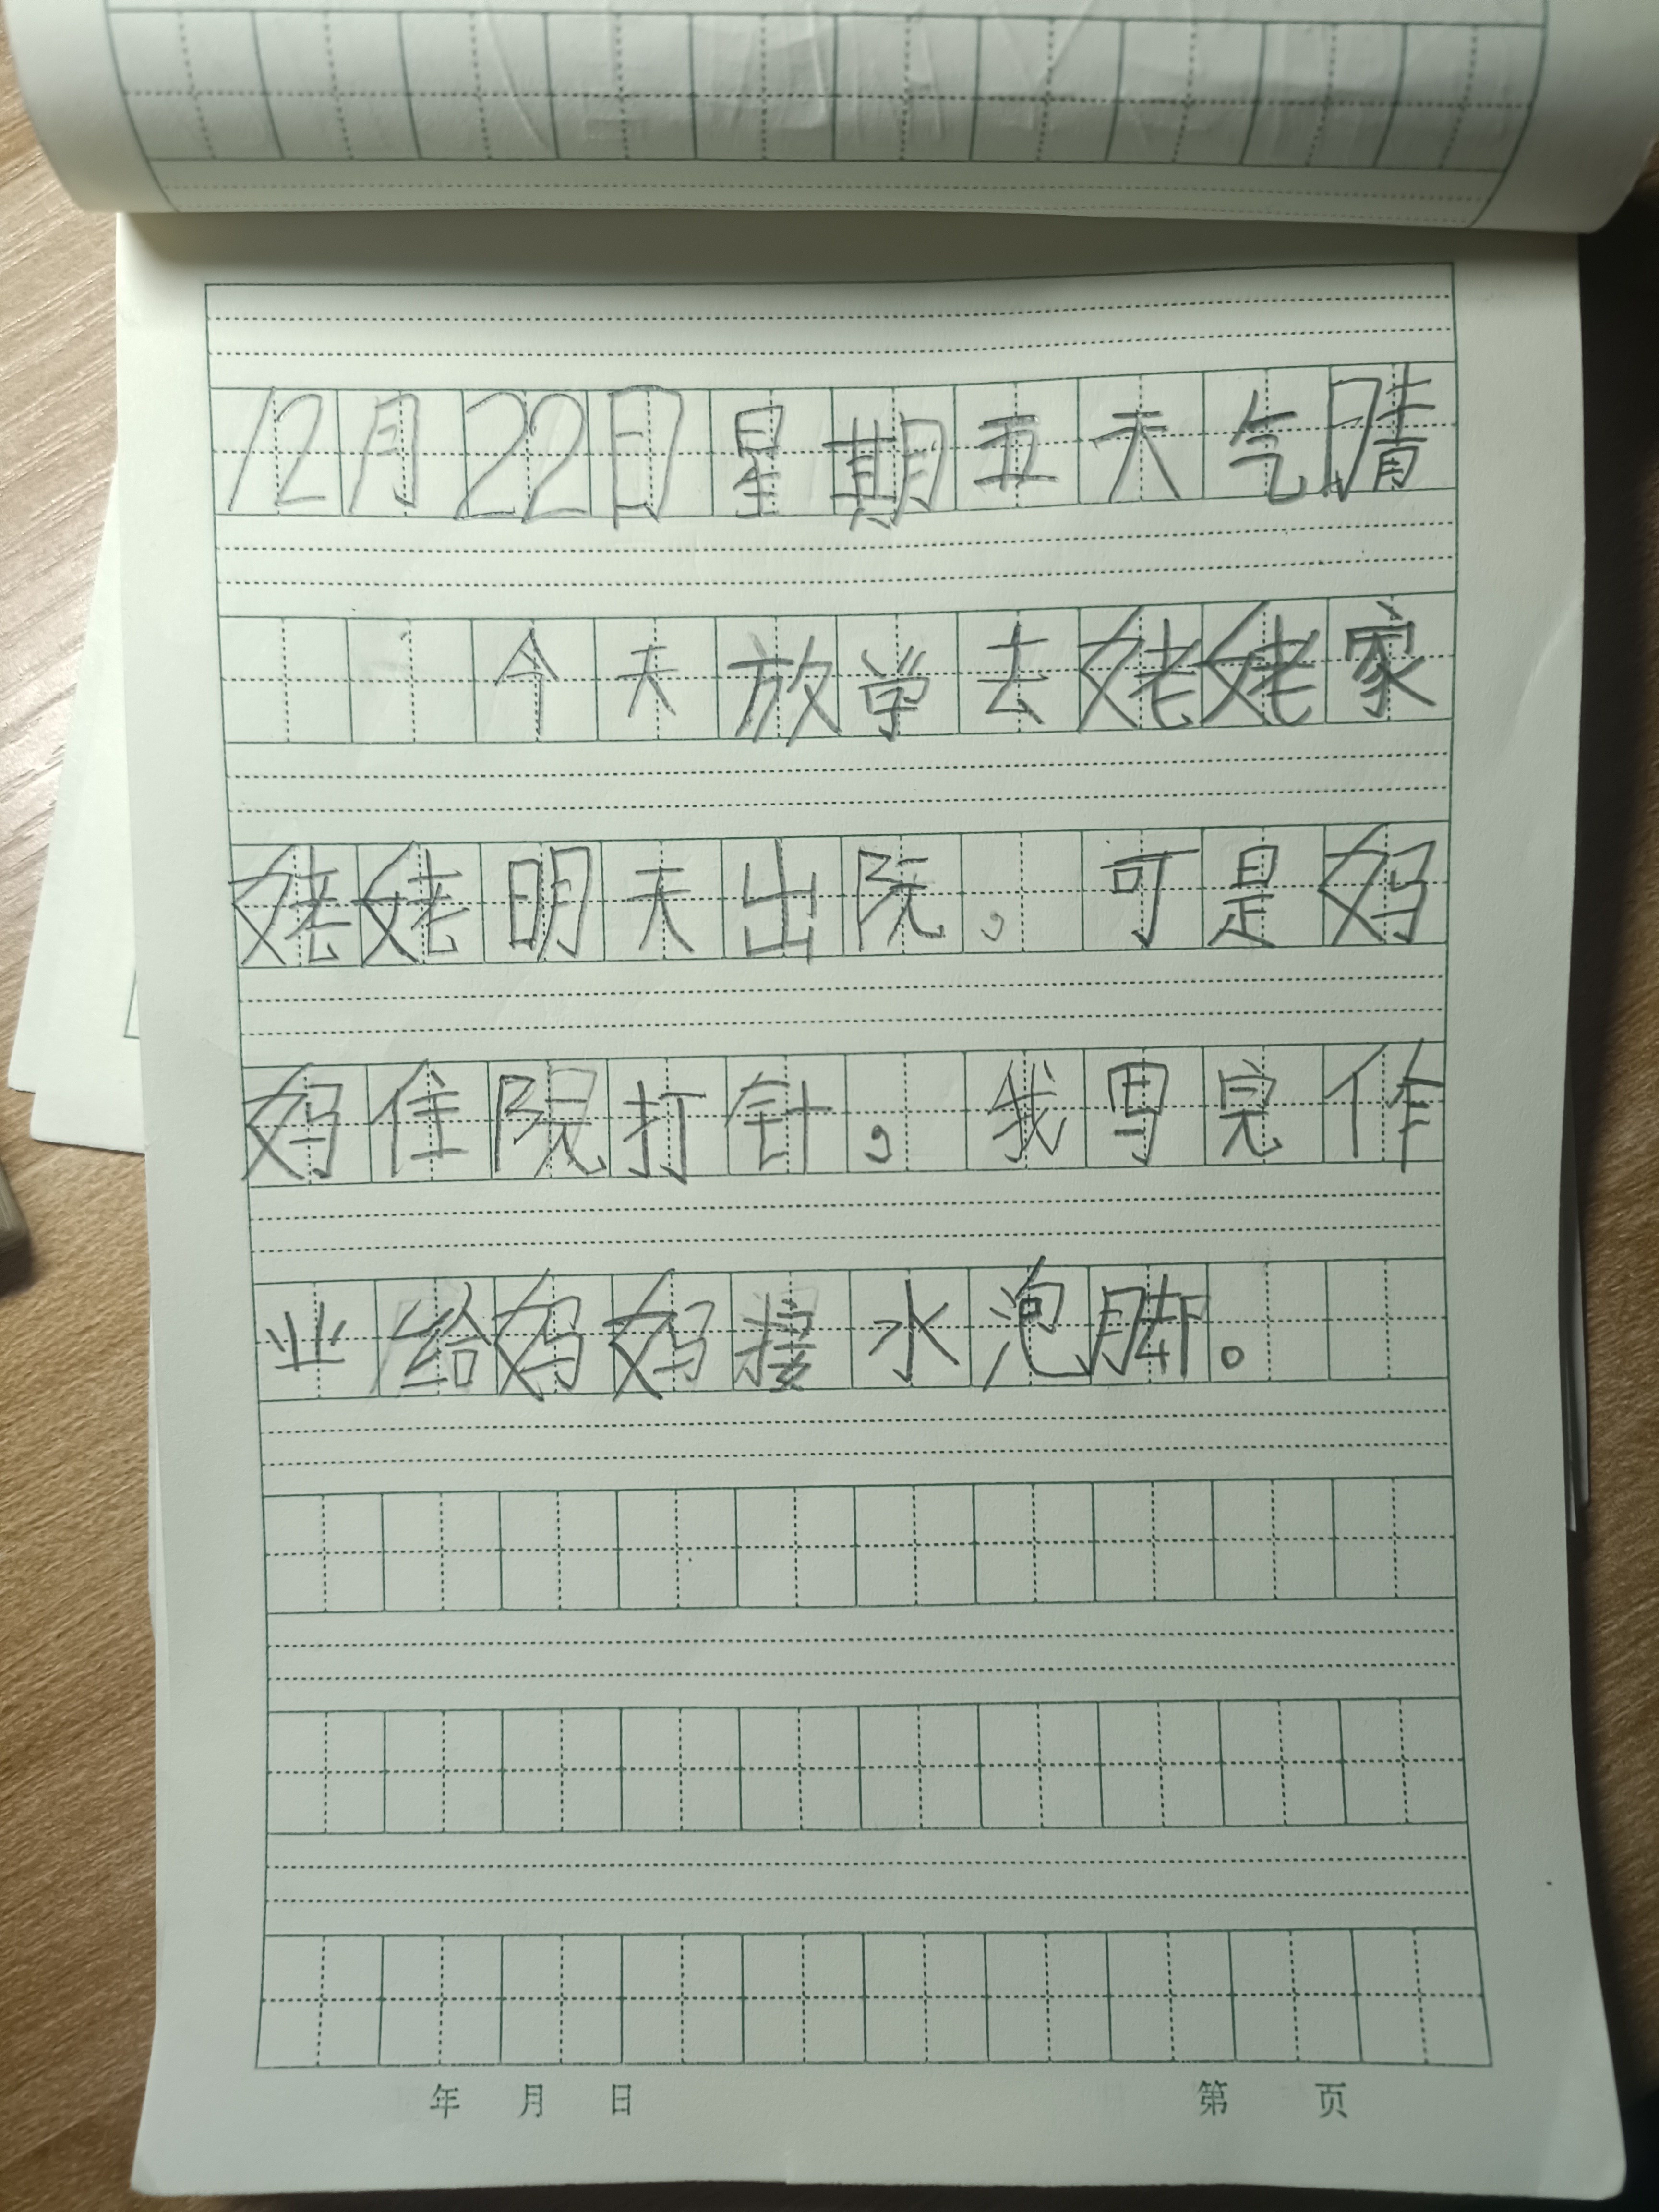 12月22日星期五天气晴
今天放学去姥姥家
姥姥明天出院,可是妈
妈住院打针,我写完作
业给妈妈接水泡脚。
年 月 日 第 页